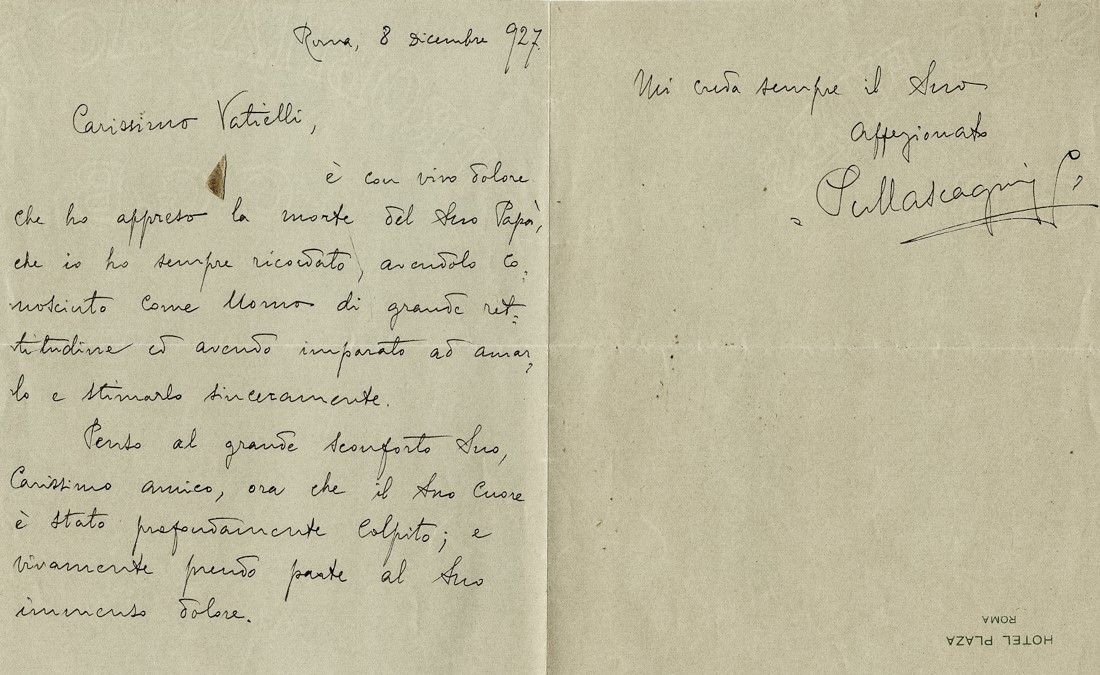 Roma, 8 dicembre 927.
Carissimo Vatielli,
è con vivo dolore
che ho appreso la morte del Suo Papà,
che io ho sempre ricordato, avendolo co=
nosciuto come Uomo di grande ret=
titudine ed avendo imparato ad amar=
lo e stimarlo sinceramente.
Penso al grande sconforto Suo,
Carissimo amico, ora che il Suo Cuore
è stato profondamente colpito; e
vivamente prendo parte al Suo
immenso dolore.
Mi creda sempre il Suo
affezionato
PMascagni
HOTEL PLAZA
ROMA